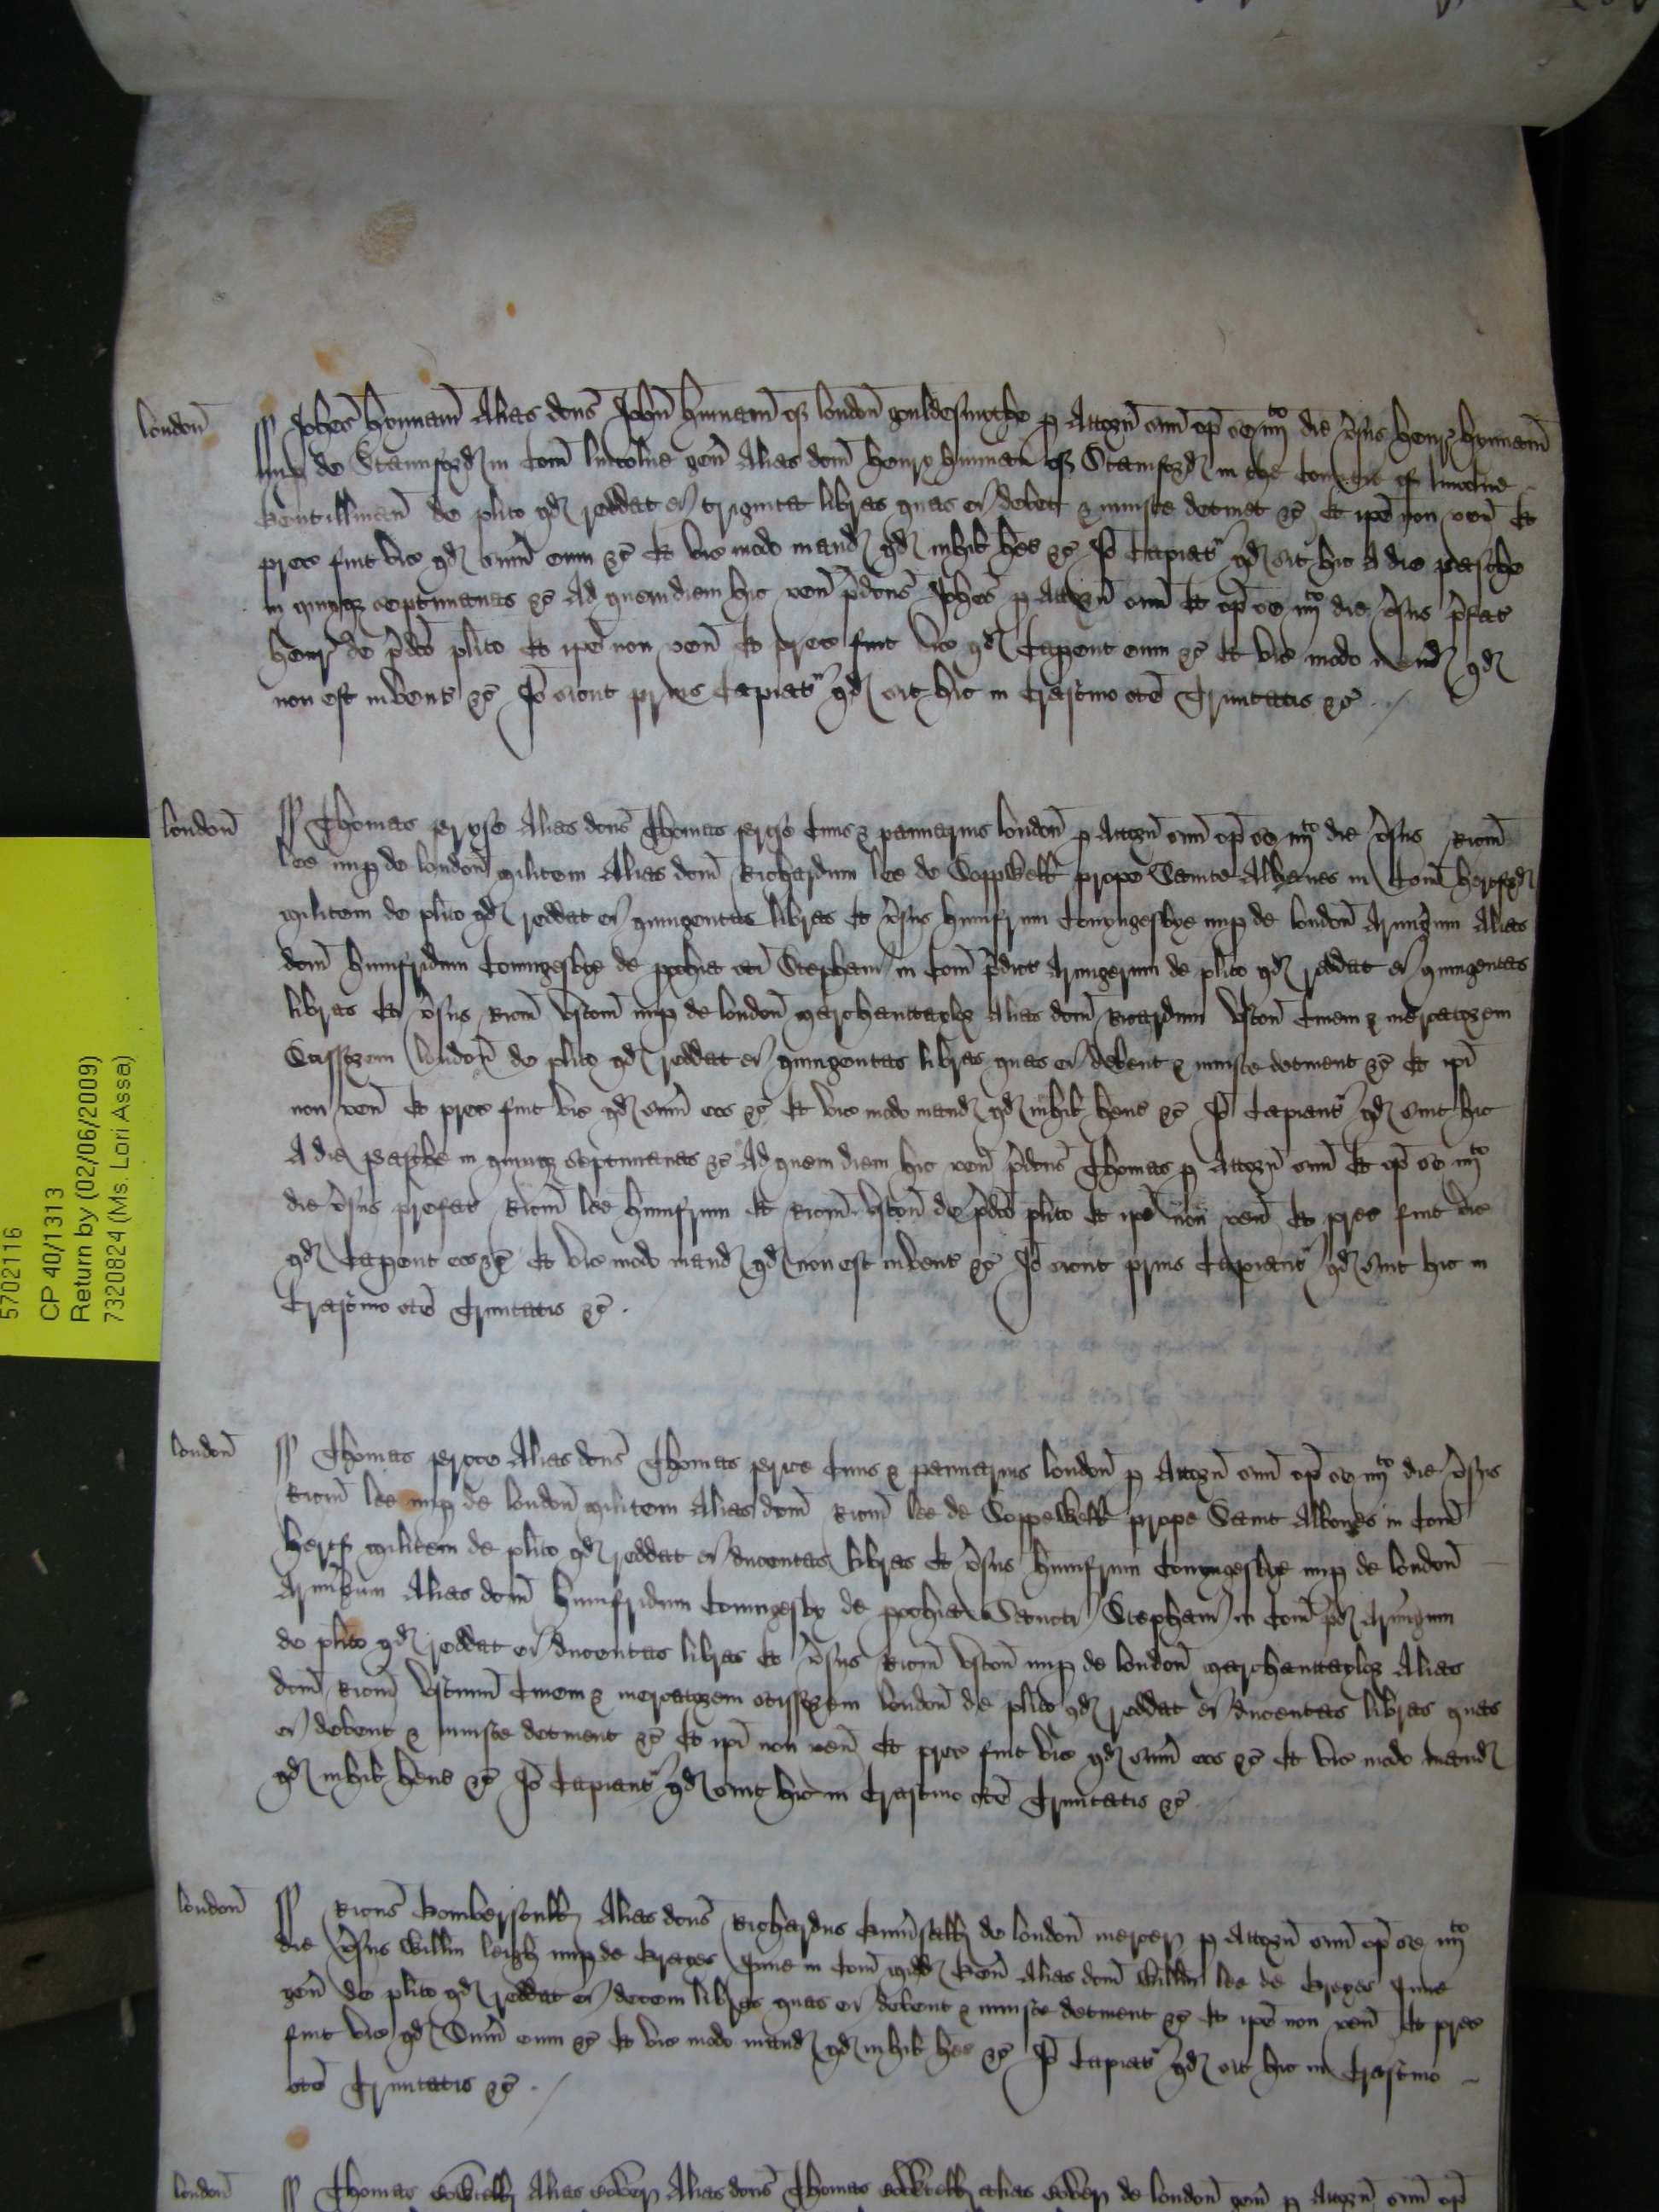 london̄ Joh̃es hynnam̄ Alias dc̄us John̄ hinnam̄ of london̄ gouldesmythe p Attorn̄ suū op̄ se iiijto die v̄sus henr̄ hynnam̄
nup de Stannford in Com̄ lincolne gen̄ Alias dcm̄ henry hinman of Stamford in the Countie of lincolne
gentillman̄ de plito qd reddat ei triginta libras quas ei debet & iniuste detinet &c̄ Et ip̄e non ven̄ Et
prec fuit vic qd sum̄ eum &c̄ Et vic modo mand qd nihil h̄et &c̄ Io Capiat qd sit hic A die pasche
in quinq septimanas &c̄ Ad quem diem hic ven̄ p̄dc̄us Joh̄es p Attorn̄ suū Et op̄ se iiijto die v̄sus p̄fat
henr̄ de p̄dc̄o plito Et ip̄e non ven̄ Et prec fuit vic qd Caperet eum &c̄ Et vic modo mand qd
non est invent &c̄ Io sicut prius Capiat qd sit hic in Crastino sc̄e Trinitatis &c̄
london̄ Thomas pryse Alias dc̄us Thomas price Ciuis & pannarius london̄ p Attorn̄ suū op̄ se iiijto die v̄sus Ric̄m
lee nup de london̄ militem Alias dcm̄ Richardum lee de Soppwell prope Saincte Albanes in Com̄ hertford
militem de plito qd reddat ei quingentas libras Et v̄sus humfrum Conyngesbye nup de london̄ Armig̃um Alias
dcm̄ humfridum Conningesbye de pochia sc̄i Stephani in Com̄ p̄dict Armigerum de plito qd reddat ei quingentas
libras Et v̄sus Ric̄m vstom̄ nup de london̄ marchanttaylor Alias dcm̄ Ricardum vston̄ Ciuem & mercatorem
Scissorem london̄ de plito qd reddat ei quingentas libras quas ei debent & iniuste detinent &c̄ Et ip̄i
non ven̄ Et prec fuit vic qd sum̄ eos &c̄ Et vic modo mand qd nihil h̄ent &c̄ Io Capiant qd sint hic
A die pasche in quinq septimanas &c̄ Ad quem diem hic ven̄ p̄dc̄us Thomas p Attorn̄ suū Et op̄ se iiijto
die v̄sus prefat Ric̄m lee humfrum Et Ric̄m vston̄ de p̄dc̄o plito Et ip̄i non ven̄ Et prec fuit vic
qd Caperet eos &c̄ Et vic modo mand qd non est invent &c̄ Io sicut prius Capiant qd sint hic in
Crastino sc̄e Trinitatis &c̄
london̄ Thomas pryce Alias dc̄us Thomas price Ciuis & pannarius london̄ p Attorn̄ suū op̄ se iiijto die v̄sus
Ric̄m lee nup de london̄ militem Alias dcm̄ Ric̄m lee de Soppewell prope Saint Albones in Com̄
hertf militem de plito qd reddat ei ducentas libras Et v̄sus humfrum Conyngesbye nup de london̄
Armig̃um Alias dcm̄ humfridum Conningesby de pochia Sancti Stephani in Com̄ p̄d Armig̃um
de plito qd reddat ei ducentas libras Et v̄sus Ric̄m vston̄ nup de london̄ marchanttaylor Alias
dcm̄ Ric̄m vstunn̄ Ciuem & mercatorem scissorem london̄ de plito qd reddat ei ducentas libras quas
ei debent & iniuste detinent &c̄ Et ip̄i non ven̄ Et prec fuit vic qd sum̄ eos &c̄ Et vic modo mand
qd nihil h̄ent &c̄ Io Capiant qd sint hic in Crastino sc̄e Trinitatis &c̄
london̄ Ric̄us Alias dc̄us Richardus de london̄ mercer p Attorn̄ suū op̄ se iiijto
die v̄sus Willm leigh nup de Grayes Inne in Com̄ midd gen̄ Alias dcm̄ Willm lee de Greyes Inne
gen̄ de plito qd reddat ei decem libras quas ei debent & iniuste detinent &c̄ Et ip̄e non ven̄ Et prec
fuit vic qd Sum̄ eum &c̄ Et vic modo mand qd nihil h̄et &c̄ Io Capiat qd sit hic in Crastino
sc̄e Trinitatis &c̄
london̄ Thomas Alias Alias dc̄us Thomas alias de london̄ gen̄ p Attorn̄ suū op̄
5702116
CP 40/1313
Return by (02/06/2009)
7320824 (Ms. Lori Assa)